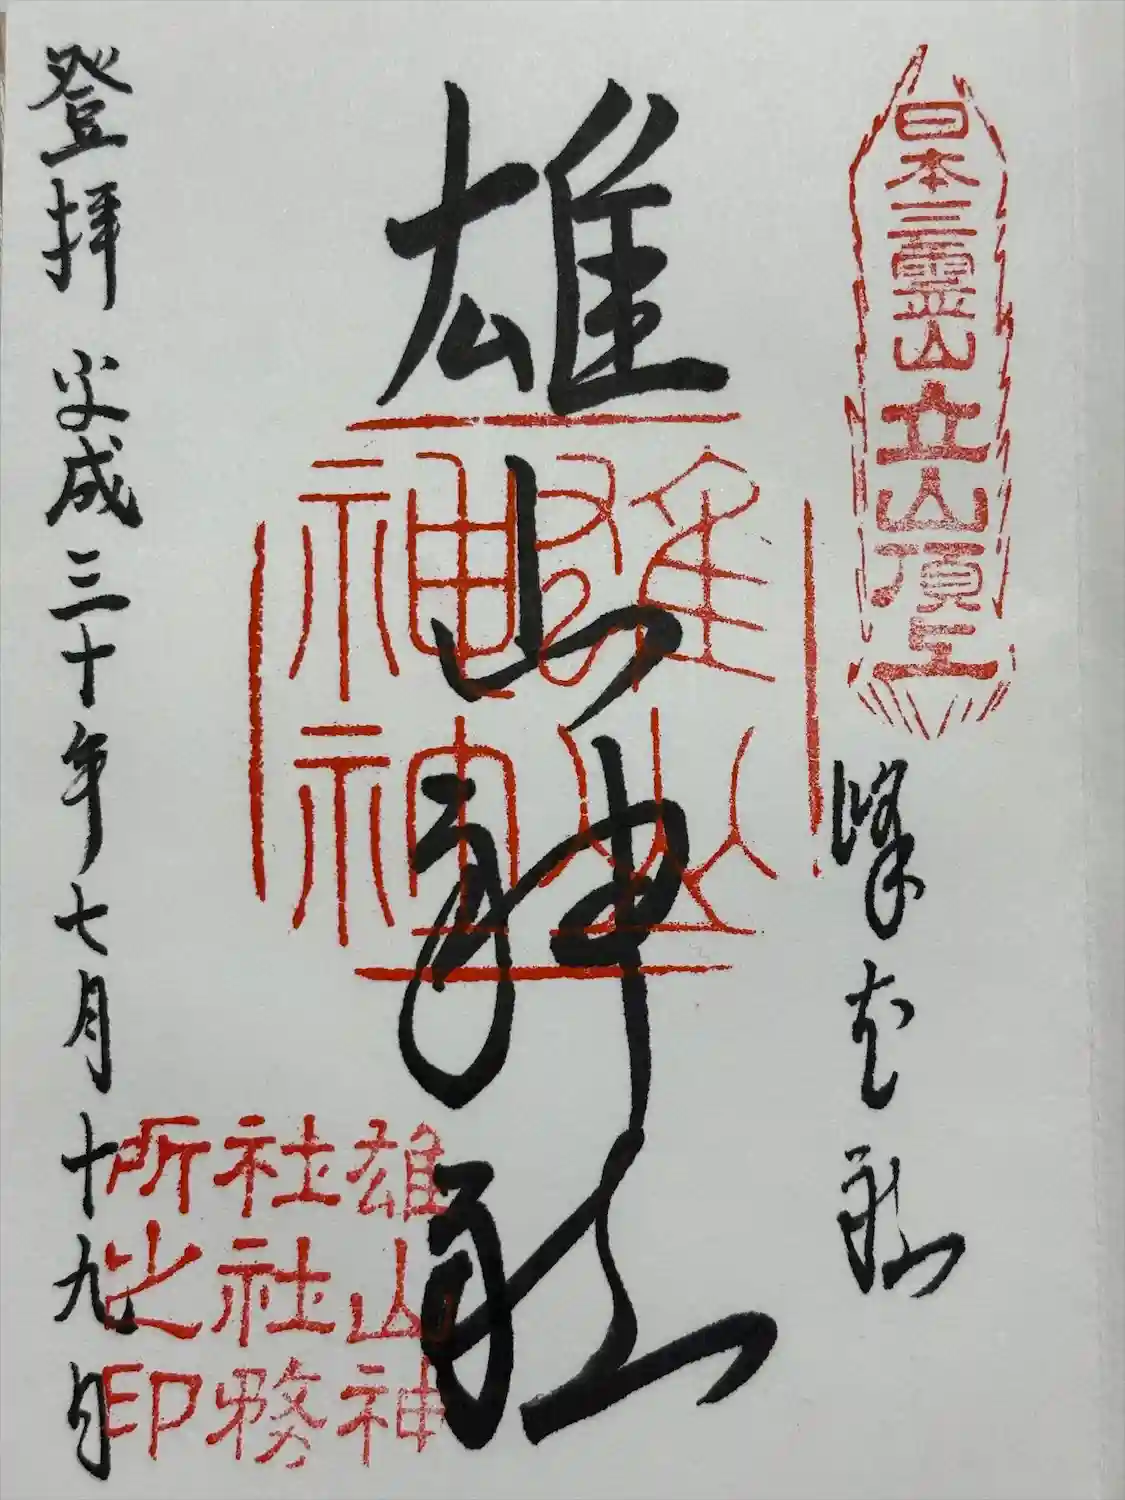 日本三霊山立山頂上
峰本社
雄山神社
雄山神
社社務
所之印
登拝 平成三十年七月十九日